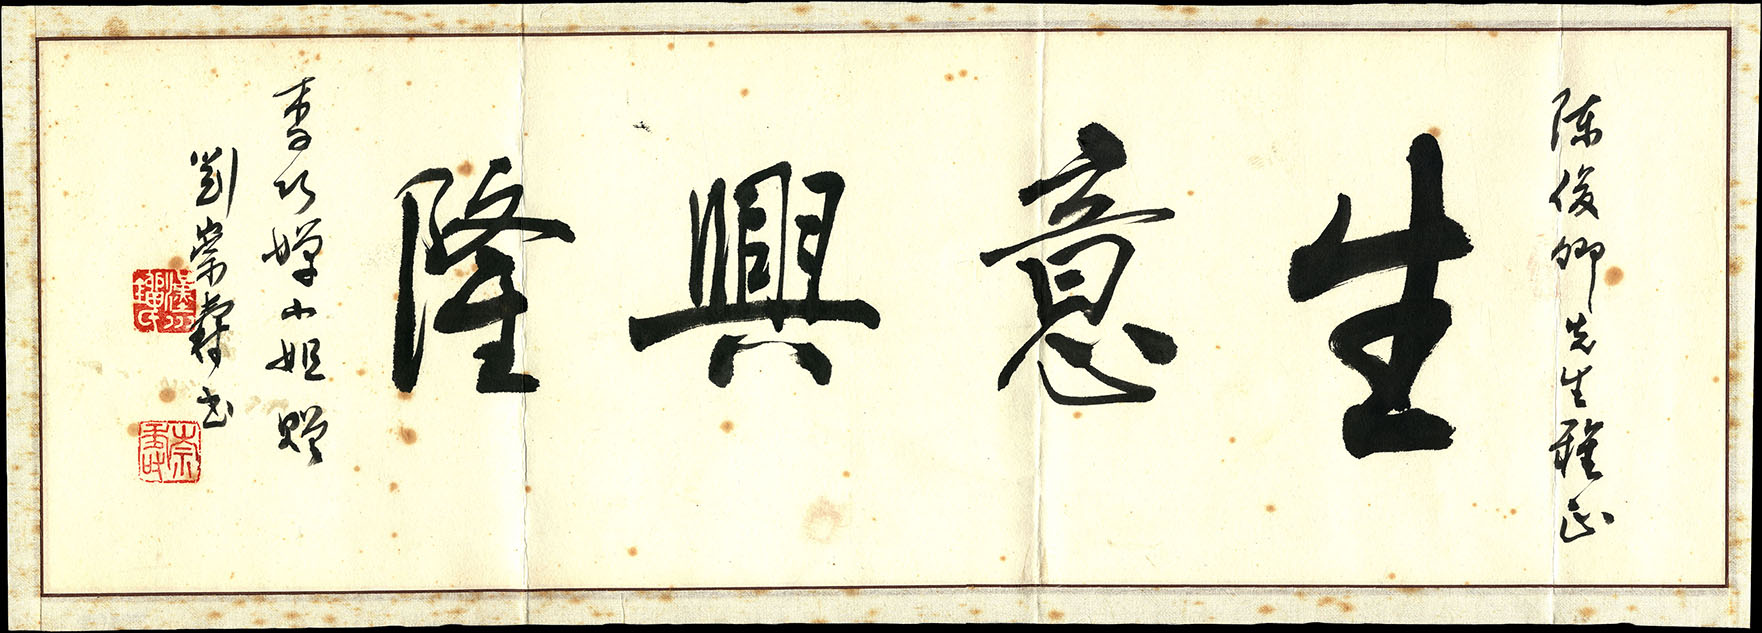 陳俊卿先生雅正
生意興隆
李巧嬋小姐贈
劉崇壽書
崇壽